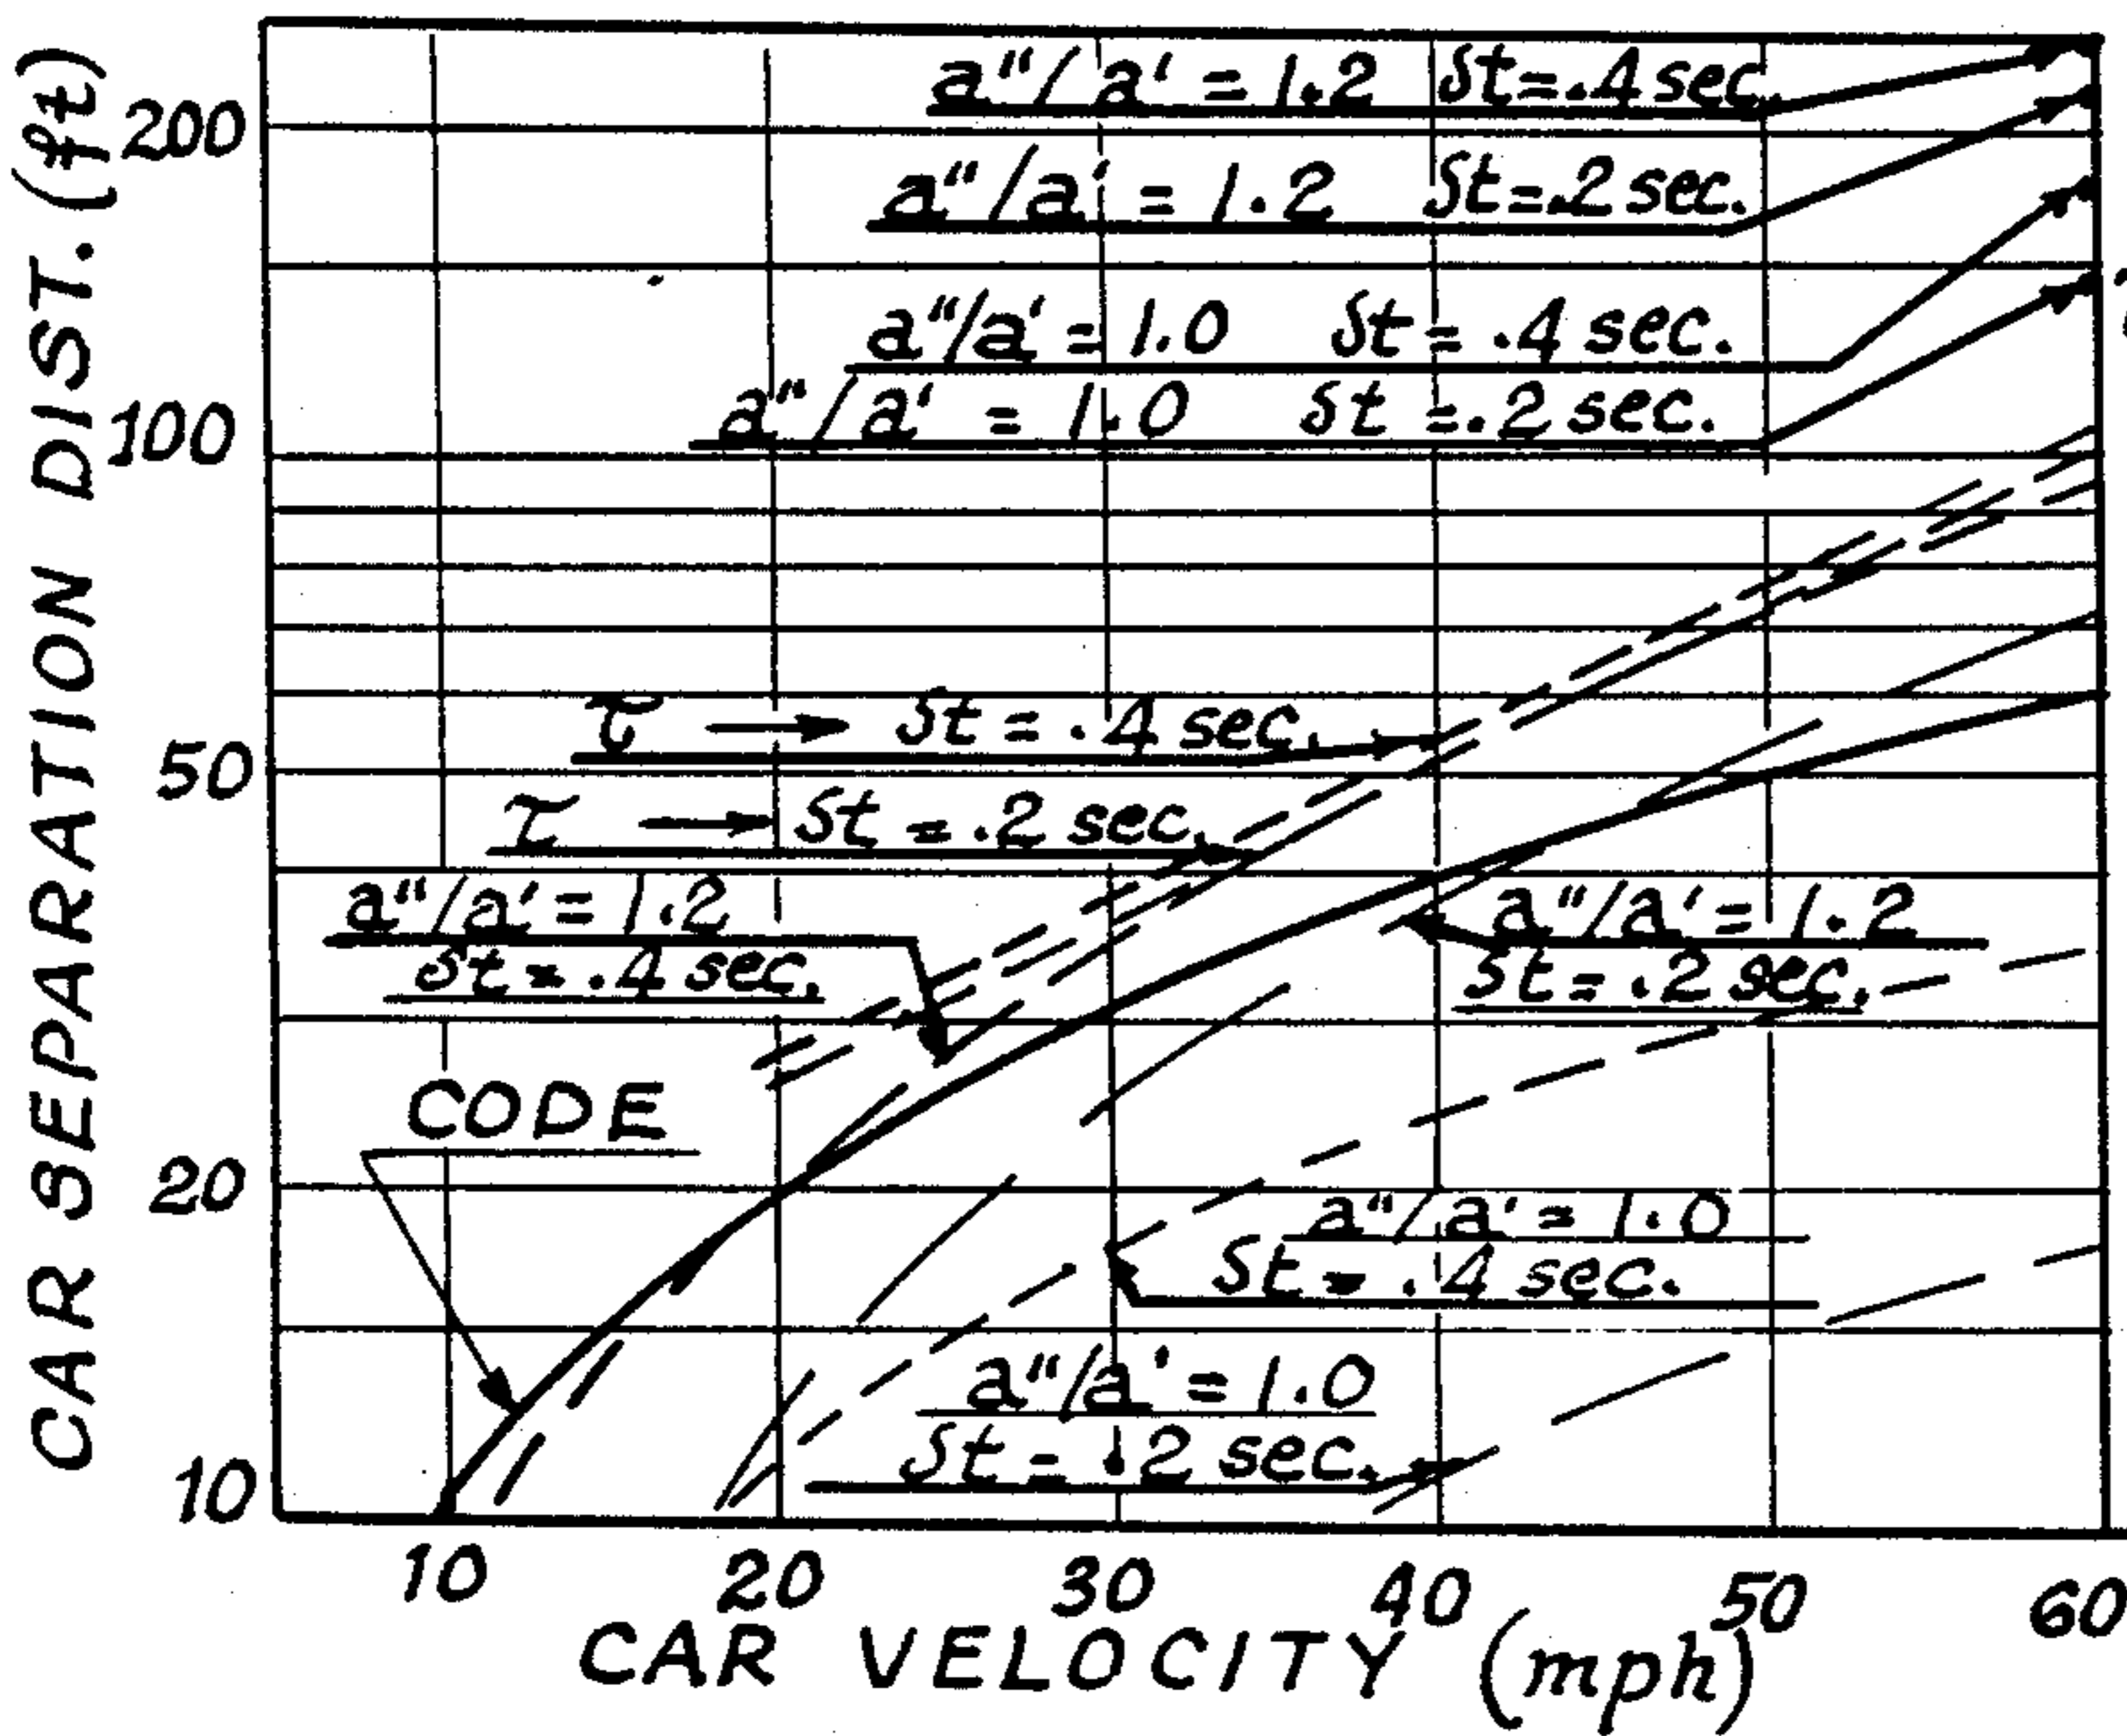 CAR SEPARATION DIST. (ft)
200
100
50
20
10
a"/a' = 1.2 δt=.4 sec.
a"/a' = 1.2 δt=.2 sec.
a"/a' = 1.0 δt = .4 sec.
a"/a' = 1.0 δt = .2 sec.
τ → δt = .4 sec.
τ → δt = .2 sec.
a"/a' = 1.2
δt = .4 sec.
a"/a' = 1.2
δt = .2 sec.
CODE
a"/a' = 1.0
δt = .4 sec.
a"/a' = 1.0
δt = .2 sec.
10 20 30 40 50 60
CAR VELOCITY (mph)